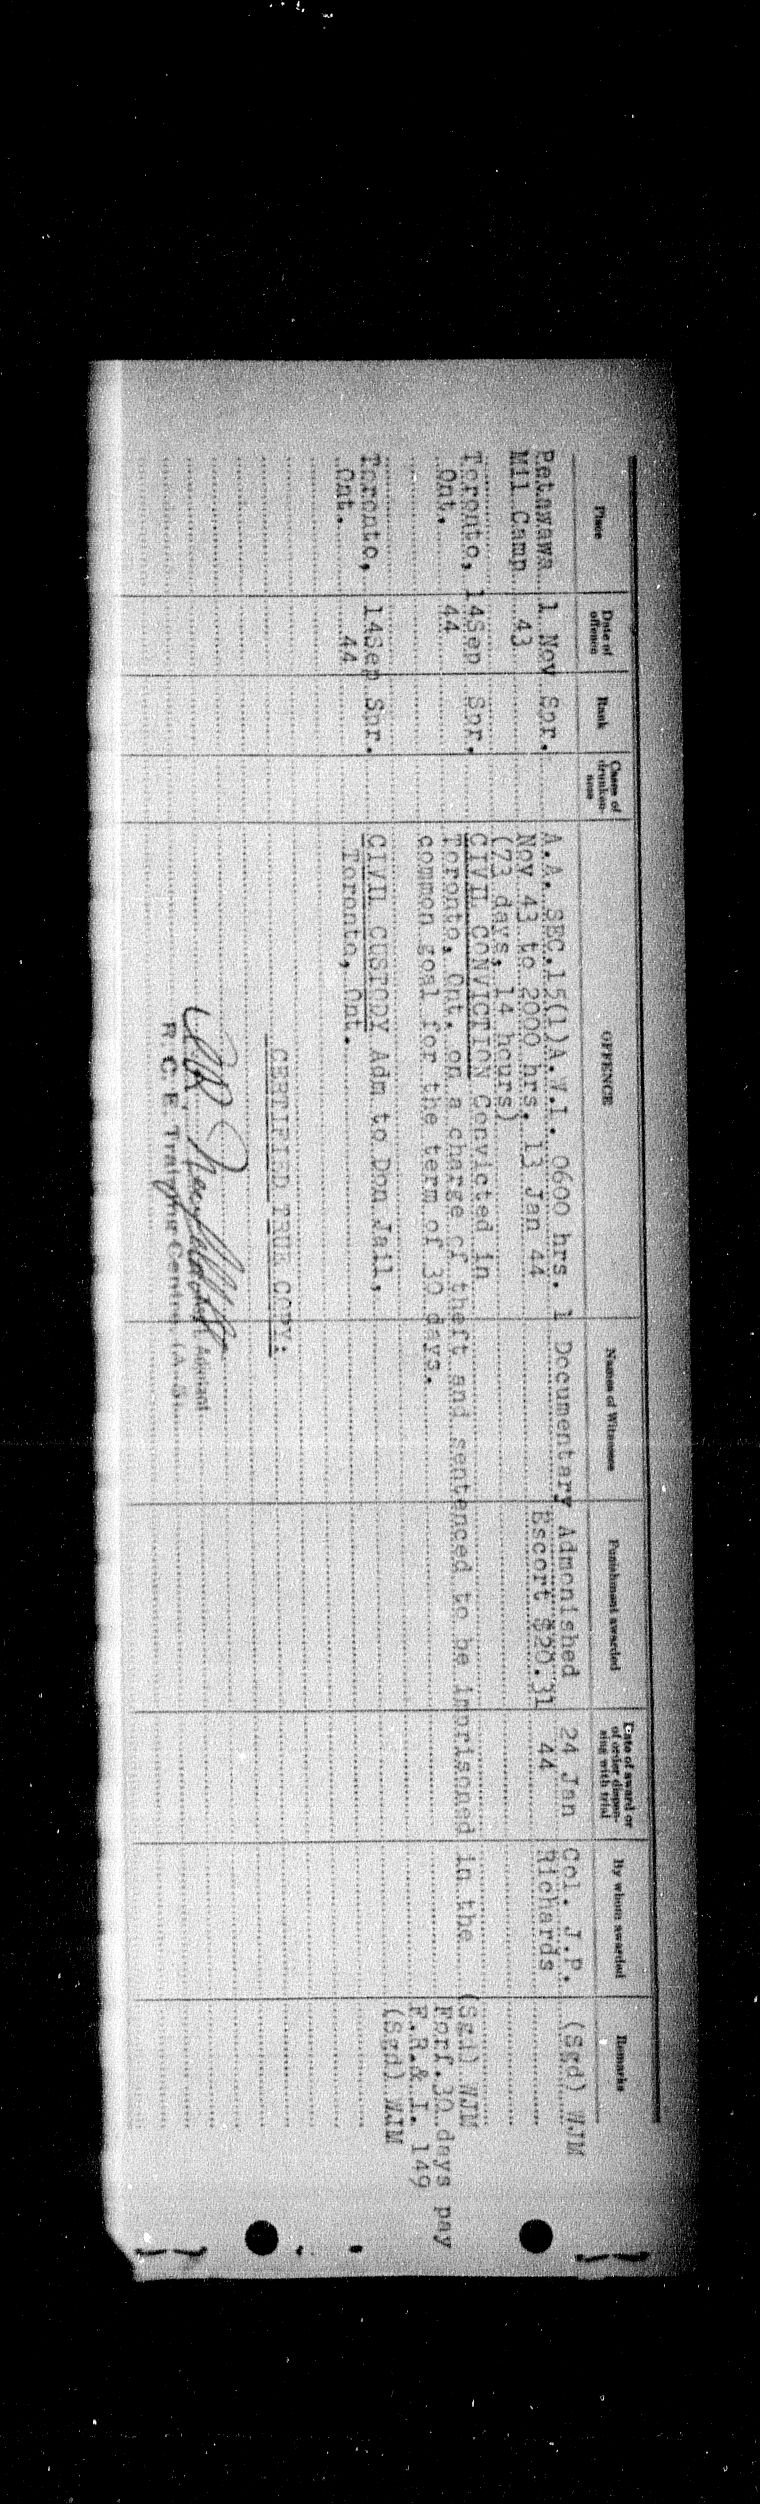 Place Date of offence Rank Cases of drunkenness OFFENCE Names of Witnesses Punishment awarded Date of award or of order dispensing with trial By whom awarded Remarks
Petawawa 1 Nov Spr. A.A. SEC.15(1)A.W.L. 0600 hrs. 1 Documentary Admonished 24 Jan Col. J.P. (Sgd) WJM
Mil Camp 43 Nov 43 to 2000 hrs. 13 Jan 44 Escort $20.31 44 Richards
(73 days, 14 hours)
Toronto, 14Sep Spr. CIVIL CONVICTION Convicted in (Sgd) WJM
Ont. 44 Toronto, Ont. on a charge of theft and sentenced to be imprisoned in the Forf.30 days pay
common goal for the term of 30 days. F.R.& I. 149
(Sgd) WJM
Toronto, 14Sep Spr. CIVIL CUSTODY Adm to Don Jail,
Ont. 44 Toronto, Ont.
CERTIFIED TRUE COPY:
Adjutant
R. C. E. Training Centre, (A-5)